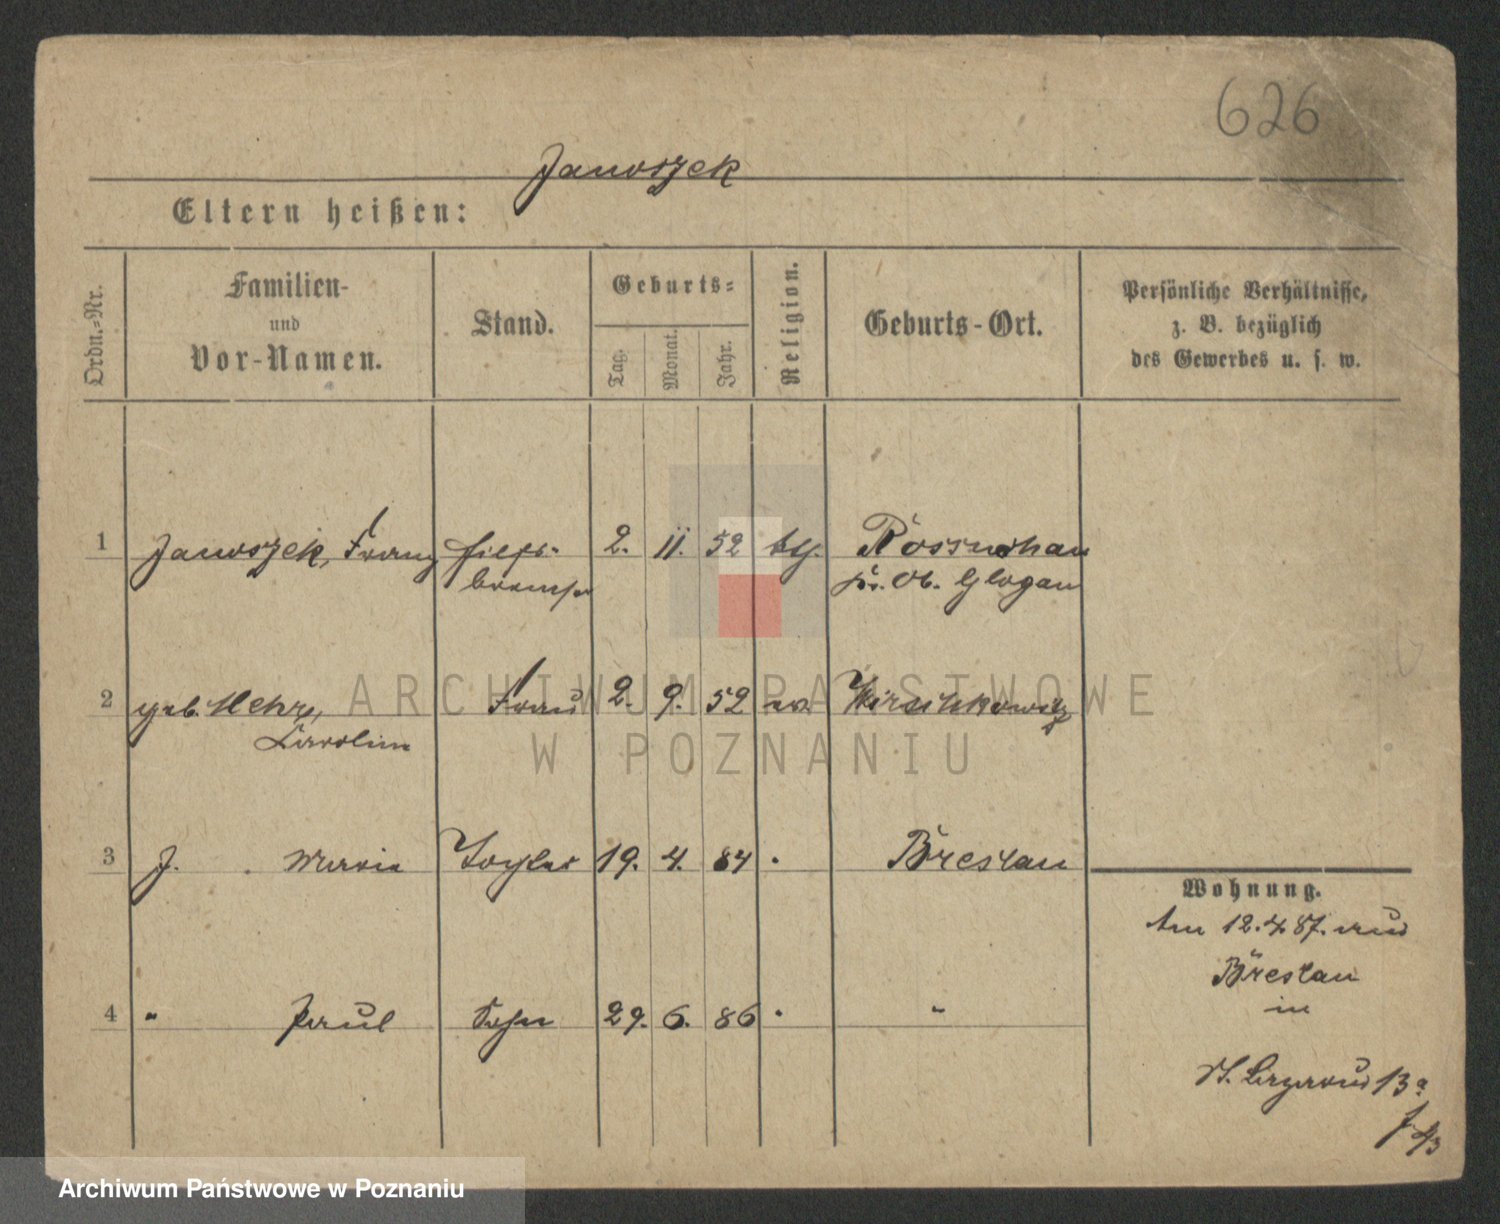 626
Janoszek
Eltern heißen:
Ordn.-Nr.
Familien-
und
Vor-Namen.
Stand.
Geburts-
Tag.
Monat.
Jahr.
Religion.
Geburts-Ort.
Persönliche Verhältnisse,
z. B. bezüglich
des Gewerbes u. s. w.
1 Janoszek, Franz Hilfs- 2. 11. 52 ktl. Rossnochau
bremser Kr. Ob. Glogau
2 geb. Mehr, Frau 2. 9. 52 ev. Wirschkowitz
Karoline
3 J. Marie Tochter 19. 4. 84 Breslau
4 " Paul Sohn 29. 6. 86 "
Wohnung.
Am 12.4.87. aus
Breslau
in
St. Lazarus 13a
ARCHIWUM PAŃSTWOWE
W POZNANIU
Archiwum Państwowe w Poznaniu